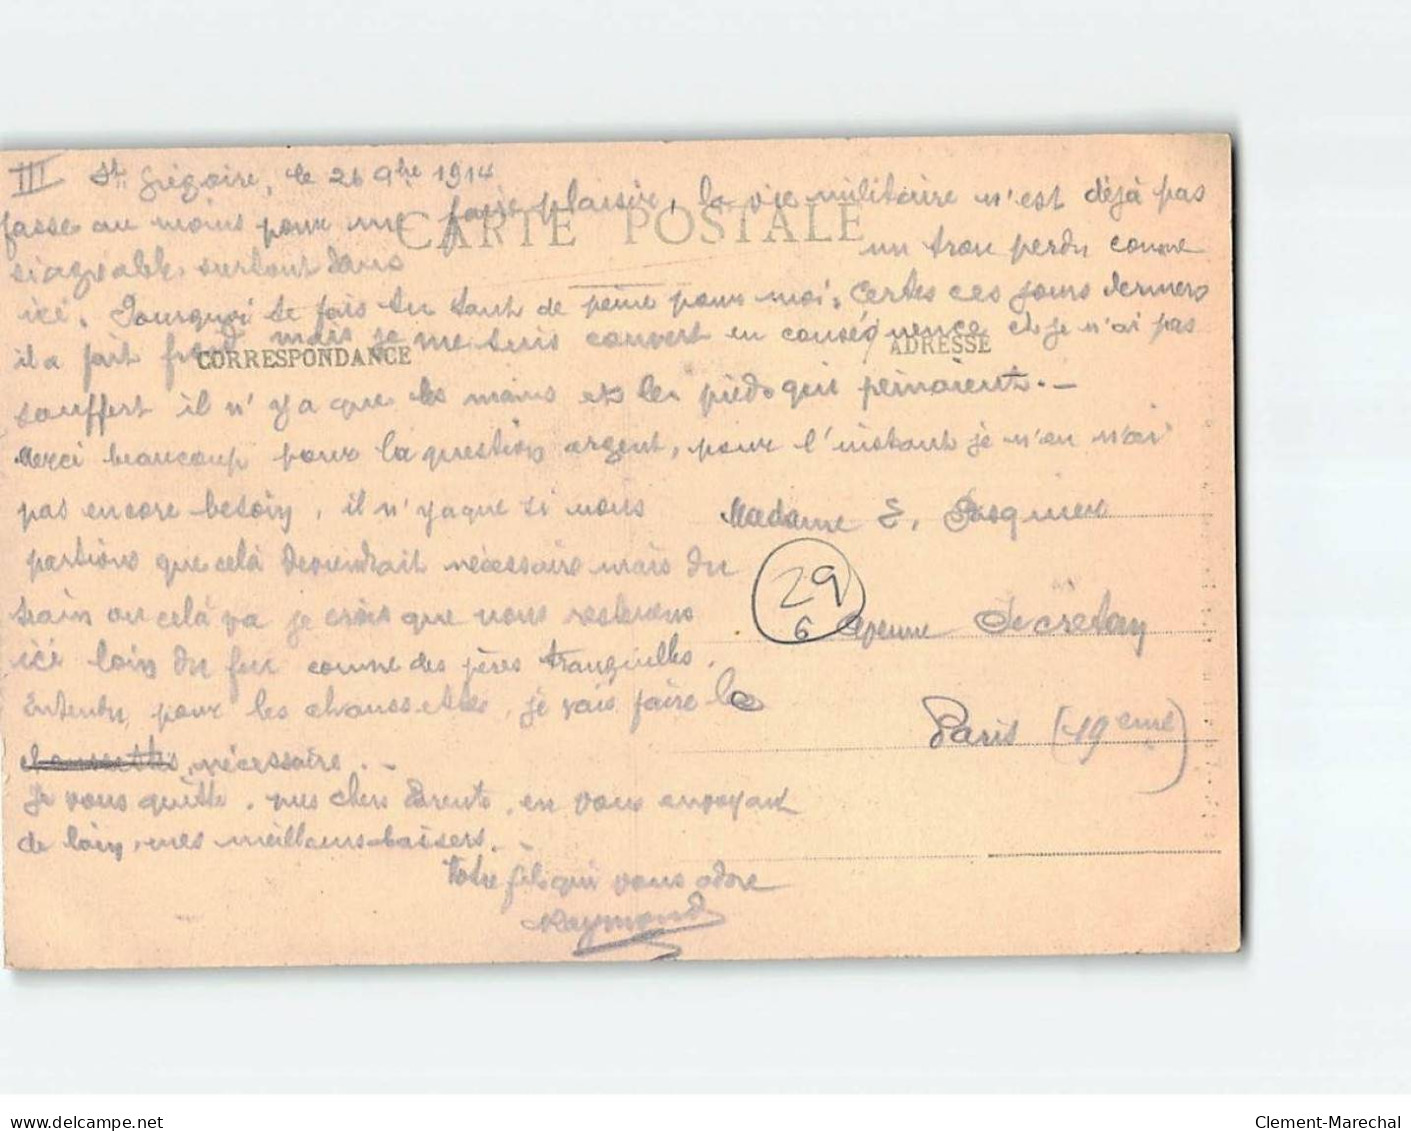 III St Grégoire, le 26 9bre 1914
fasse au moins pour me faire plaisir, la vie militaire n'est déjà pas
CARTE POSTALE
si agréable surtout dans un trou perdu comme
ici. Pourquoi te fais tu tant de peine pour moi. Certes ces jours derniers
il a fait froid mais je me suis couvert en conséquence et je n'ai pas
CORRESPONDANCE
ADRESSE
souffert il n'y a que les mains et les pieds qui peinaient. -
Merci beaucoup pour la question argent, pour l'instant je n'en n'ai
pas encore besoin, il n'y a que si nous
partions que celà deviendrait nécessaire mais du
train où celà va je crois que nous resterons
ici loin du feu comme des pères tranquilles.
Entendu, pour les chaussettes, je vais faire le
chaussettes nécessaire. -
Je vous quitte, mes chers Parents, en vous envoyant
de loin, mes meilleurs baisers. -
Votre fils qui vous adore
Raymond
Madame E. Pasquier
29
6
Avenue Secretan
Paris (19eme)
delcampe.net
Clement-Marechal